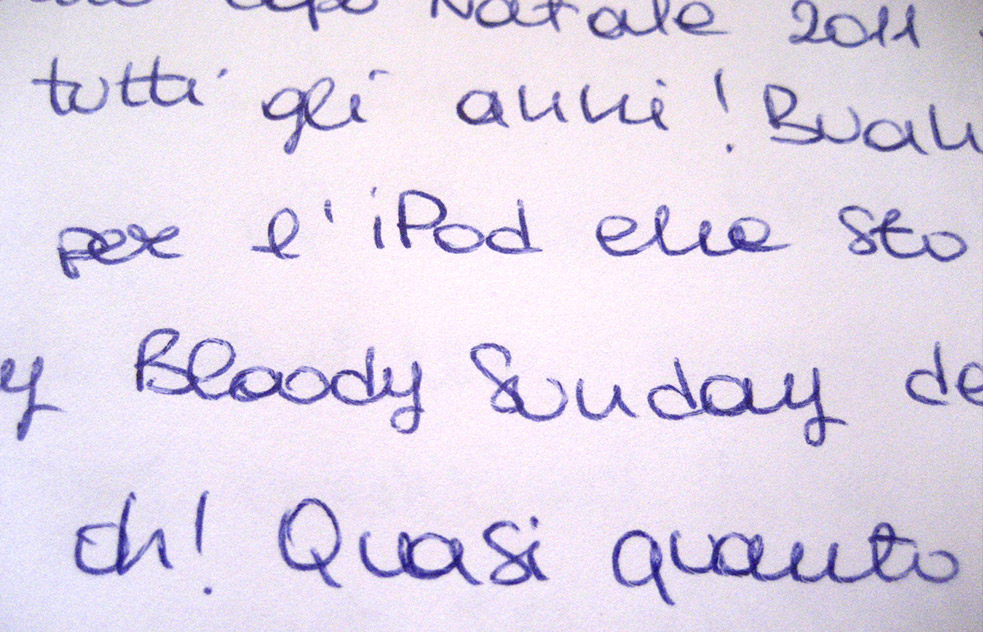 dopo Natale 2011
tutti gli anni! Buah
per l'iPod che sto
y Bloody Sunday de
ch! Quasi quanto